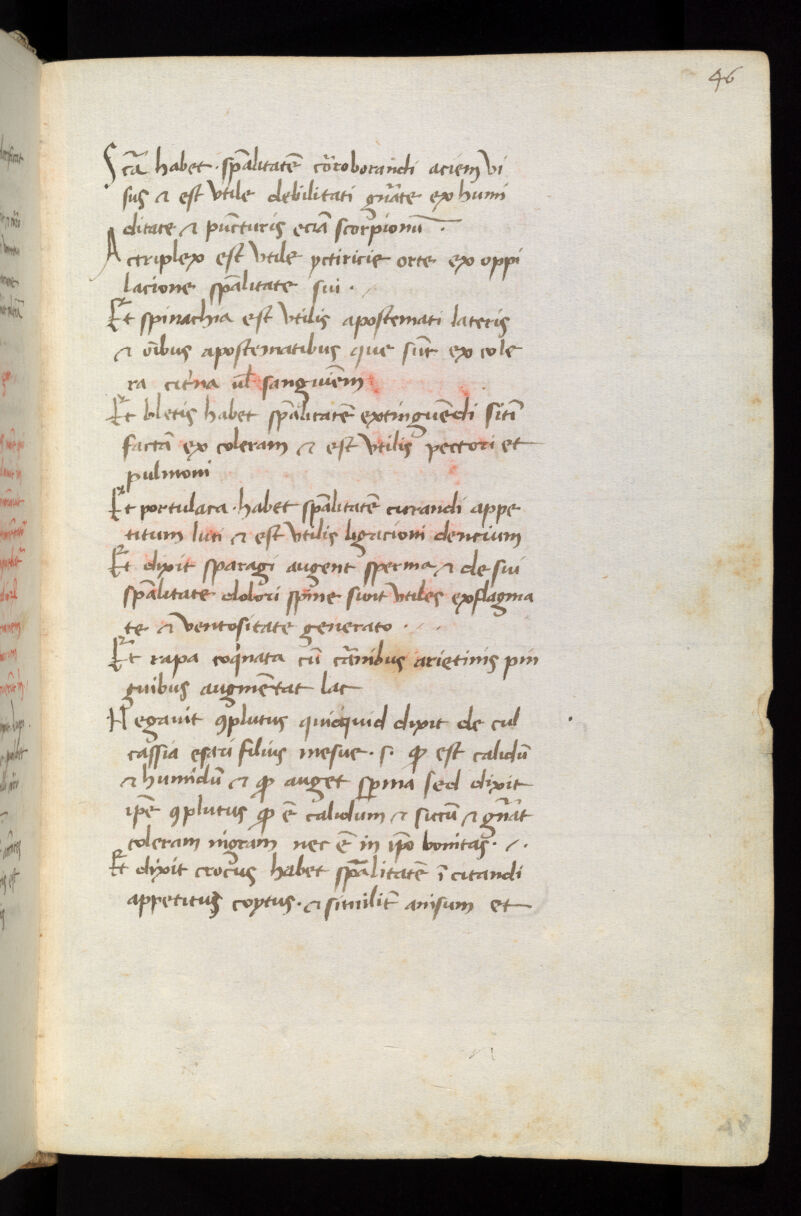 46
Scā habet · spālitatē cōroborandi aciem vi
sus ⁊ est vtile debilitati gn̄ate ex humi
ditate ⁊ puncturis eciā scorpionū ·
Actriplex est vtile ycticie orte ex oppi
lacione spālitate sui ·
Et spinachia est vtilis apostemati lateris
⁊ oībus apostematibus que sūt ex cole
ra cit'na ul' sanguiēm
Et bletis habet spālitatē extinguēdi sitī
factā ex coleram ⁊ est vtilis pectori et
pulmoni
Et portulaca · habet spālitatē curandi appe
titum luti ⁊ est vtilis ligacioni dencium
Et dixit sparagi augent sperma ⁊ de sui
spālitate dolori spine sunt vtiles ex flagma
te ⁊ ventositate generato ·
Et rapa coq'nata cū carnibus arietinis pin
guibus augmētat lac
Negauit ꝯplutus quicquid dixit de cul
cassia esari filius mesue · s · ꝙ est calidū
⁊ humidū ⁊ ꝙ auget sꝑma sed dixit
ip̄e ꝯplutus ꝙ ē calidum ⁊ siccū ⁊ gn̄at
coleram nigram nec ē in ip̄o bonitas ·
Et dixit crocus habet spālitatē īcitandi
appetitus coytus · ⁊ similit' anisum et